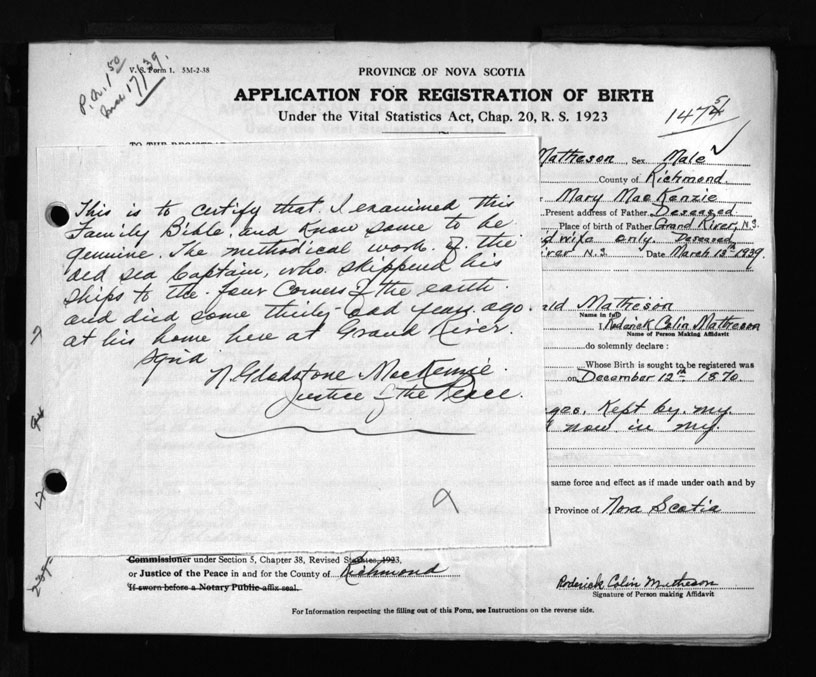 P.A. 1 50
June 17/39.
V. S. Form 1. 5M-2-38
PROVINCE OF NOVA SCOTIA
APPLICATION FOR REGISTRATION OF BIRTH
Under the Vital Statistics Act, Chap. 20, R. S. 1923
Matheson, Sex Male
County of Richmond
Mary MacKenzie
Present address of Father Deseased
Place of birth of Father Grand River, N.S.
dwife only Deseased
iver N.S. Date March 13th 1939.
This is to certify that I examined this
Family Bible, and Know same to be
genuine. The methodical work of the
old sea Captain, who skippend his
ships to the four Corners of the earth
and died some thirty-odd years ago
at his home here at Grand River.
N. Gladstone MacKenzie.
Justice of the Peace.
ald Matheson
Name in full
I, Roderick Colin Matheson
Name of Person Making Affidavit
do solemnly declare:
Whose Birth is sought to be registered was
on December 12th 1870
ges, Kept by my
d now in my
same force and effect as if made under oath and by
d Province of Nova Scotia
Commissioner under Section 5, Chapter 38, Revised Statutes, 1923,
or Justice of the Peace in and for the County of Richmond
If sworn before a Notary Public affix seal.
Roderick Colin Matheson
Signature of Person making Affidavit
For Information respecting the filling out of this Form, see Instructions on the reverse side.